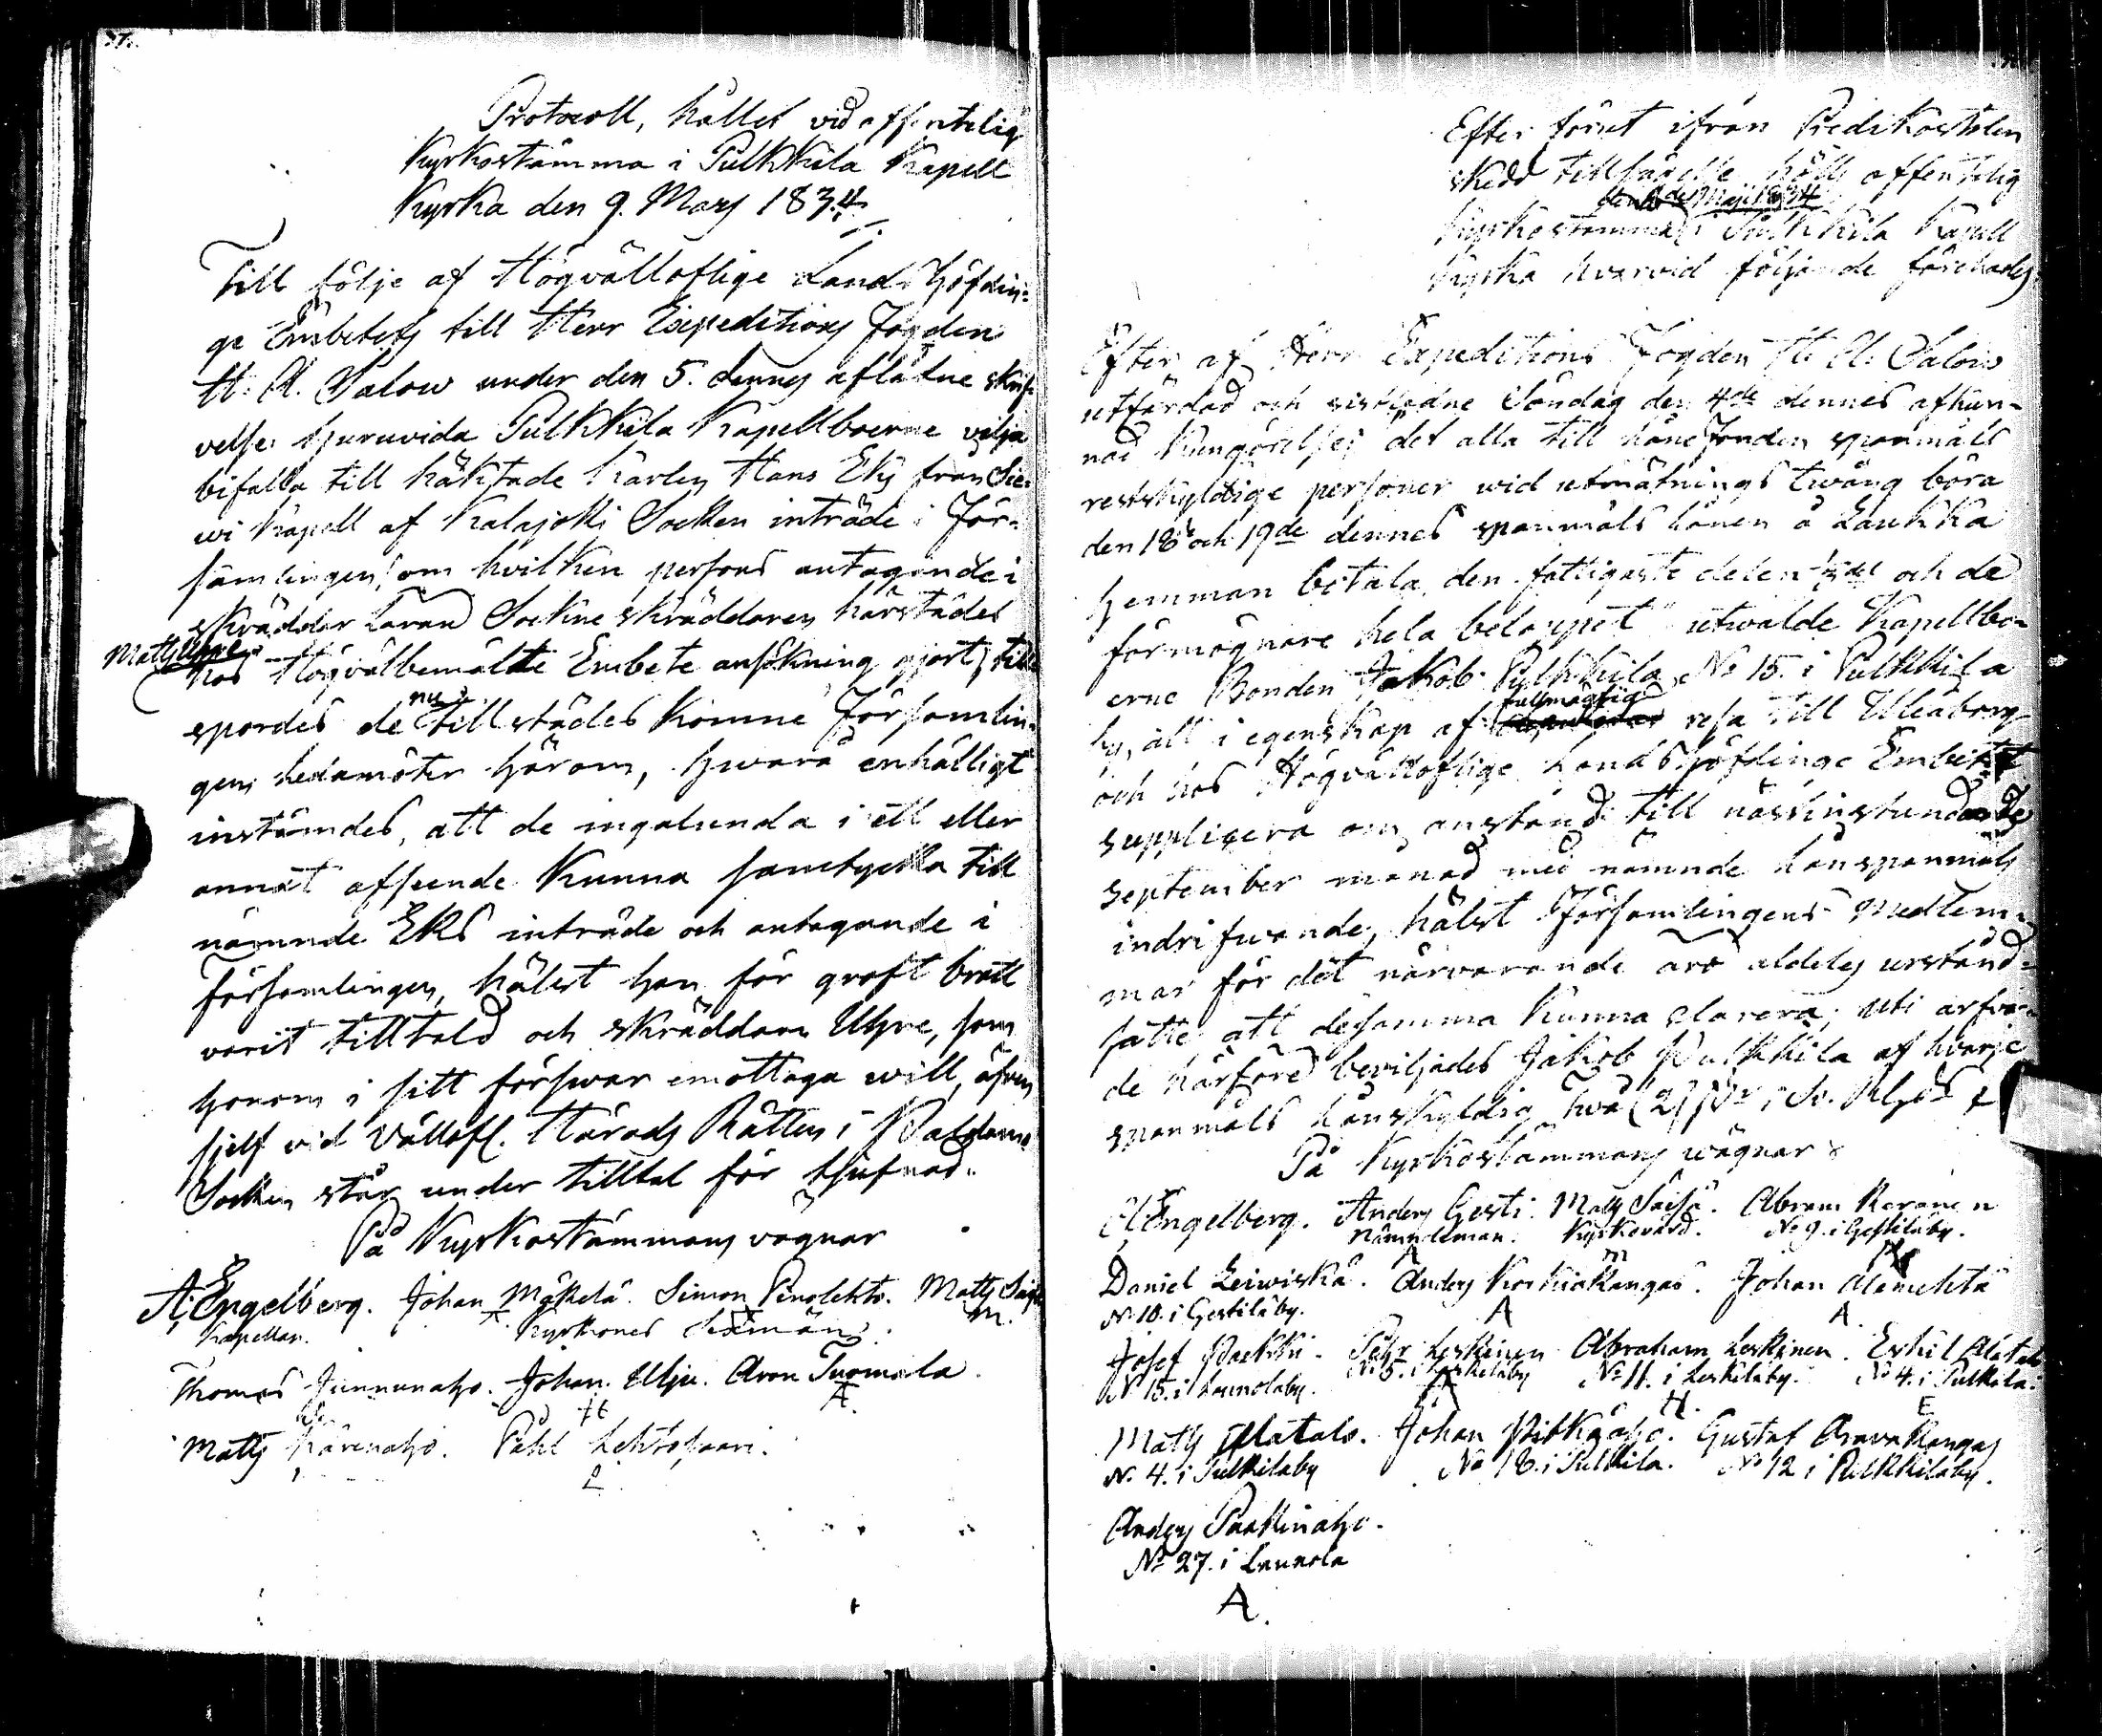 Protocoll, hållet vid offentelig
Kyrkostämma i Pulkkila Kapell
Kyrka den 9. Mars 1834.
Till följe af Högvälloflige Lands Höfdin-
ge Embetets till Herr Expeditions Fogden
H. A. Salow under den 5. dennes aflåtne skrif-
velse, huruvida Pulkkila Kapellboerne vilja
bifalla till häktade Karlen Hans Eks från Sie-
wi Kapell af Kalajoki Socken inträde i För-
samlingen, om hvilken persons antagande i
skräddar Läran Sockne skräddaren härstädes
Matts Uhre
hos Högvälbemälte Embete ansökning gjort, till-
spordes de nu tillstädes komne Församlin-
gens ledamöter härom, hvarå enhälligt
instämdes, att de ingalunda i ett eller
annat afseende kunna samtycka till
nämnde Eks inträde och antagande i
Församlingen, hälst han för groft brått
varit tilltald och skräddare Uhre, som
honom i sitt försvar emottaga will, äfven
sjelf vid Vällofl. Härads Rätten i Paldamo
Socken står under tilltal för tjufnad.
På Kyrkostämmans vägnar
A. Engelberg. Johan Mäkelä. Simon Penolehto. Matts
Kapellan. Kyrkones Sexmän. M.
Thomas Junnunaho. Johan Uhre. Aron Tuomala.
A.
Matts Kärenaho. Påhl Lehtosaari.
Efter förut ifrån Predikostolen
skedd tillsägelse hölls offentelig
den 11de Maji 1834
Kyrkostämma i Pulkkila Kapell
Kyrka hvarvid följande förehades
Efter af Herr Expeditions Fogden H. A. Salow
utfärdad och sistledne Söndag den 4de dennes afkun-
nad kungörelse, det alla till låne Fonden spanmåls
restskyldige personer wid utmätnings twång böra
den 18 och 19de dennes spanmåls lånen å Laukka
Hemman betala, den fattigaste delen och de
förmögnare hela beloppet utwalde Kapellbo-
erne Bonden Jakob Pulkkila No 15. i Pulkkila
by, att i egenskap af fullmägtig resa till Uleåborg
och hos Högvälloflige Lands Höfdinge Embetet
supplicera om anstånd till nästinstundande
September månad med nämnde lånspanmåls
indrifwande, hälst Församlingens Medlem-
mar för det närvarande äro aldeles urstånd-
satte, att desamma kunna clarera; uti arfvo-
de härföre beviljades Jakob Pulkkila af hvarje
spanmåls lånskyldig två (2)
På Kyrkostämmans wägnar
A. Engelberg. Anders Gesti. Matts Saisa. Abram Keranen
Nämndeman. Kyrkovärd. No 9. i Gestiläby.
Daniel Leiwiskä. Anders Korkiakangas. Johan Alamehtä
No 10. i Gestiläby. A A.
Josef Pockki. Pehr Leskinen Abraham Leskinen. Eskil Alatalo
No 15. i Launolaby. No 5. i Leskeläby No 11. i Leskeläby. No 4. i Pulkila.
H. E
Matts Alatalo. Johan Pitkäaho. Gustaf Aravakangas
No 4. i Pulkilaby No 18. i Pulkila. No 12 i Pulkkilaby.
Anders Paakkinaho.
No 27. i Launola
A.